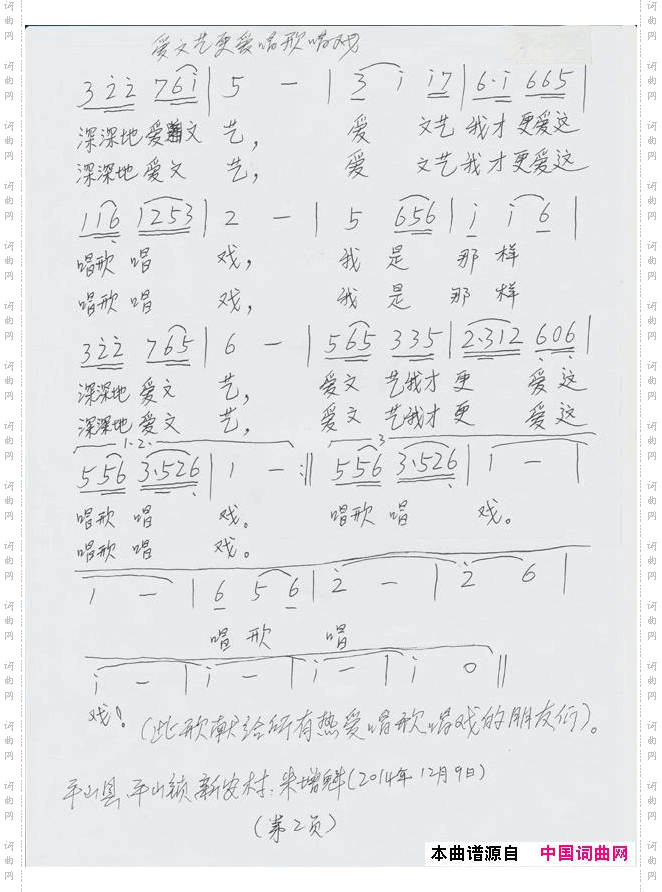 爱文艺更爱唱歌唱戏
3 2̇ 2̇ 7 6 1̇ | 5 － | 3 1̇ 1̇ 7 | 6·1̇ 6 6 5 |
深深地爱 文 艺， 爱 文艺我才更爱这
深深地爱文 艺， 爱 文艺我才更爱这
1 1 6̣ 1 2 5 3 | 2 － | 5 6 5 6 | 1̇ 1̇ 6 |
唱歌 唱 戏， 我 是 那 样
唱歌 唱 戏， 我 是 那 样
3 2̇ 2̇ 7 6 5 | 6 － | 5 6 5 3 3 5 | 2·3 1 2 6̣ 0 6̣ |
深深地 爱文 艺， 爱文 艺我才 更 爱这
深深地 爱文 艺， 爱文 艺我才 更 爱这
1·2· 3
5 5 6 3·5 2 6̣ | 1 － :‖ 5 5 6 3·5 2 6̣ | 1 － |
唱歌 唱 戏。 唱歌 唱 戏。
唱歌 唱 戏。
1 － | 6 5 6 | 2̇ － | 2̇ 6 |
唱 歌 唱
1̇ － | 1̇ － | 1̇ － | 1̇ 0 ‖
戏！（此歌献给所有热爱唱歌唱戏的朋友们）。
平山县，平山镇新安村，米增魁（2014年12月9日）
（第2页）
本曲谱源自 中国词曲网